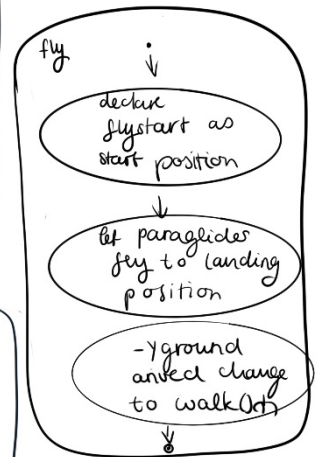 fly
declare
flystart as
start position
let paraglides
fly to landing
position
-yground
arived change
to walk